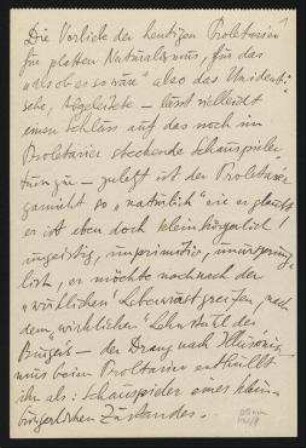 1
Die Vorliebe der heutigen Proletarier
für platten Naturalismus, für das
"als ob es so wäre" also das Unidenti-
sche, Abgeleitete – lässt vielleicht
einen Schluss auf das noch im
Proletarier steckende Schauspieler
tum zu – zuletzt ist der Proletarier
garnicht so "natürlich" wie er glaubt
er ist eben doch kleinbürgerlich!
ungeistig, unprimitiv, unursprüng-
lich, er möchte noch nach der
"wirklichen" Lebenswäst greifen, nach
dem "wirklichen" Lehnstuhl des
Bürgers – der Drang nach Illusionis-
mus beim Proletarier enthüllt
ihn als: Schauspieler eines klein-
bürgerlichen Zustandes.